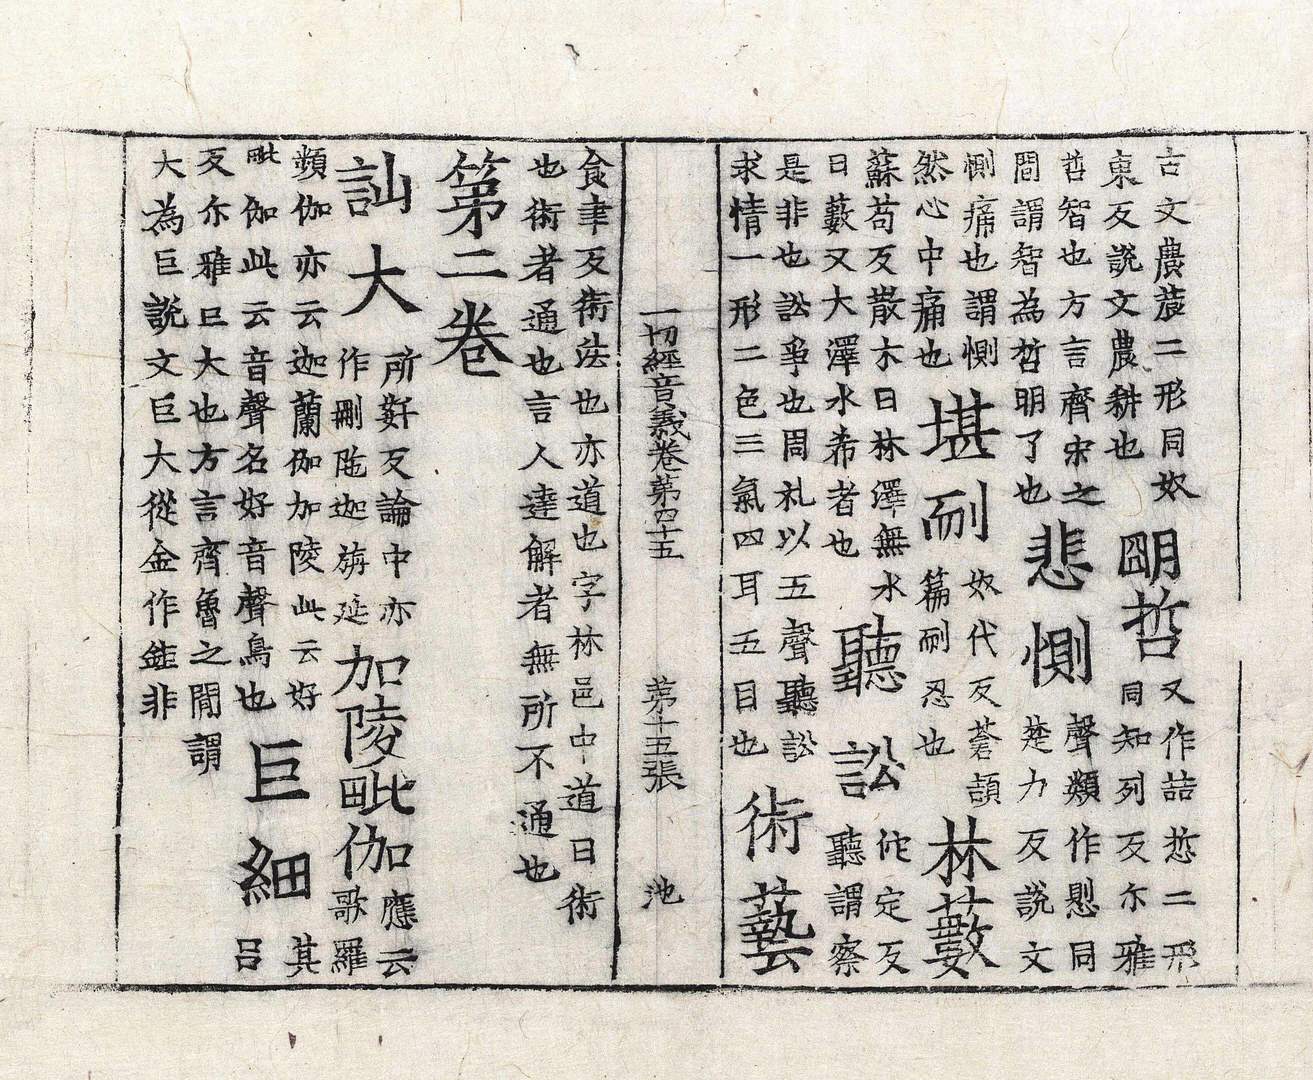 古文農莀二形同奴
東反說文農耕也
明哲
又作喆悊二形
同知列反尒雅
哲智也方言齊宋之
間謂智為哲明了也
悲惻
聲類作𢠽同
楚力反說文
惻痛也謂惻
然心中痛也
堪耐
奴代反蒼頡
篇耐忍也
林藪
蘇苟反散木曰林澤無水
曰藪又大澤水希者也
聽訟
侘定反
聽謂察
是非也訟爭也周礼以五聲聽訟
求情一形二色三氣四耳五目也
術藝
一切經音義卷第四十五 第十五張 池
食聿反術法也亦道也字林邑中道曰術
也術者通也言人達解者無所不通也
第二卷
訕大
所姧反論中亦
作刪陁迦旃延
加陵毗伽
應云
歌羅
頻伽亦云迦蘭伽加陵此云好
毗伽此云音聲名好音聲鳥也
巨細
其
呂
反尒雅巨大也方言齊魯之間謂
大為巨說文巨大從金作鉅非